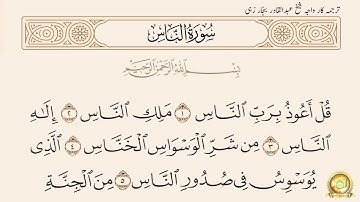 ترجمہ کار واجہ شیخ عبدالقادر بجار زہی
سُورَةُ النَّاسِ
بِسْمِ اللَّهِ الرَّحْمَٰنِ الرَّحِيمِ
قُلْ أَعُوذُ بِرَبِّ النَّاسِ ١ مَلِكِ النَّاسِ ٢ إِلَٰهِ
النَّاسِ ٣ مِن شَرِّ الْوَسْوَاسِ الْخَنَّاسِ ٤ الَّذِي
يُوَسْوِسُ فِي صُدُورِ النَّاسِ ٥ مِنَ الْجِنَّةِ